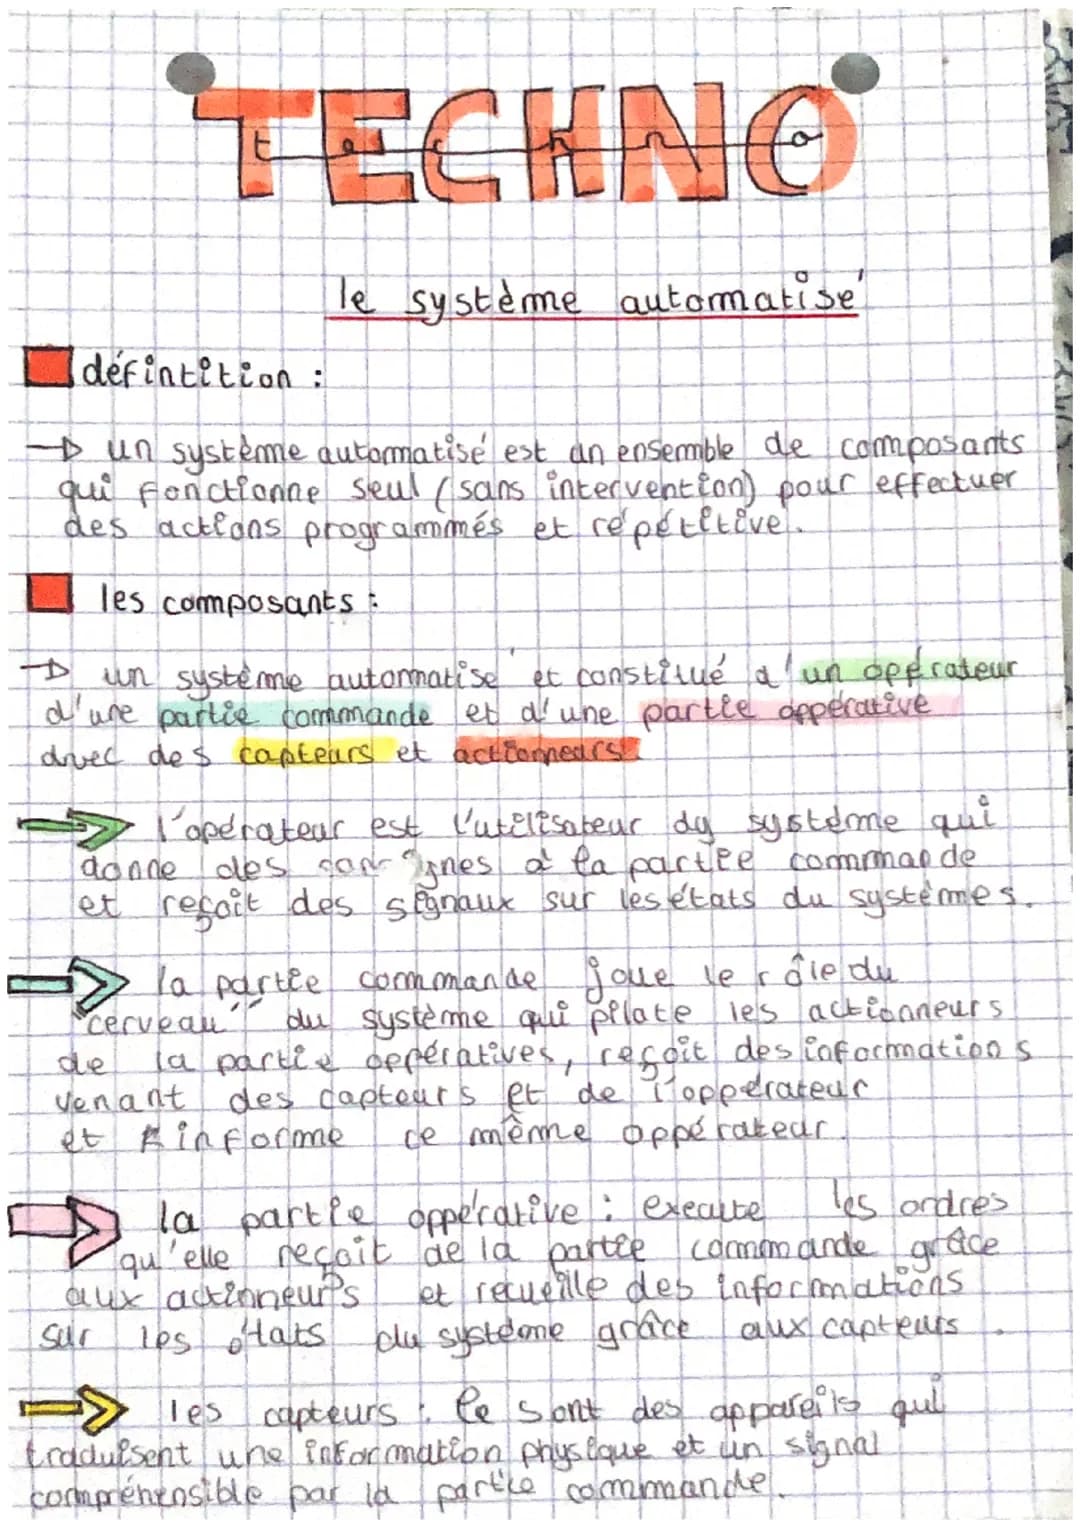 TECHNO
techno
le système automatisé
défintition :
un système automatisé est un ensemble de composants
qui fonctionne seul (sans intervention) pour effectuer
des actions programmés et répétitive.
les composants :
un système automatisé et constitué d'un oppérateur
d'une partie commande et d'une partie oppérative
avec des capteurs et actionneurs.
l'opérateur est l'utilisateur dy système qui
donne des consignes à la partie commande
et reçoit des signaux sur les états du systèmes.
la partie commande joue le rôle du
"cerveau" du système qui pilote les actionneurs
de la partie oppératives, reçoit des informations
venant des capteurs et de l'oppérateur
et informe ce même oppérateur.
la partie oppérative : execute les ordres
qu'elle reçoit de la partie commande grâce
aux actionneurs et recueille des informations
sur les états du système grâce aux capteurs.
les capteurs : Ce sont des appareils qui
traduisent une information physique et un signal
compréhensible par la partie commande.